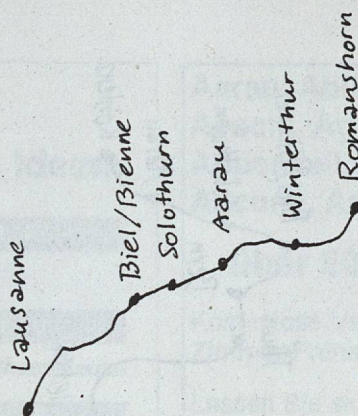 Lausanne
Biel/Bienne
Solothurn
Aarau
Winterthur
Romanshorn